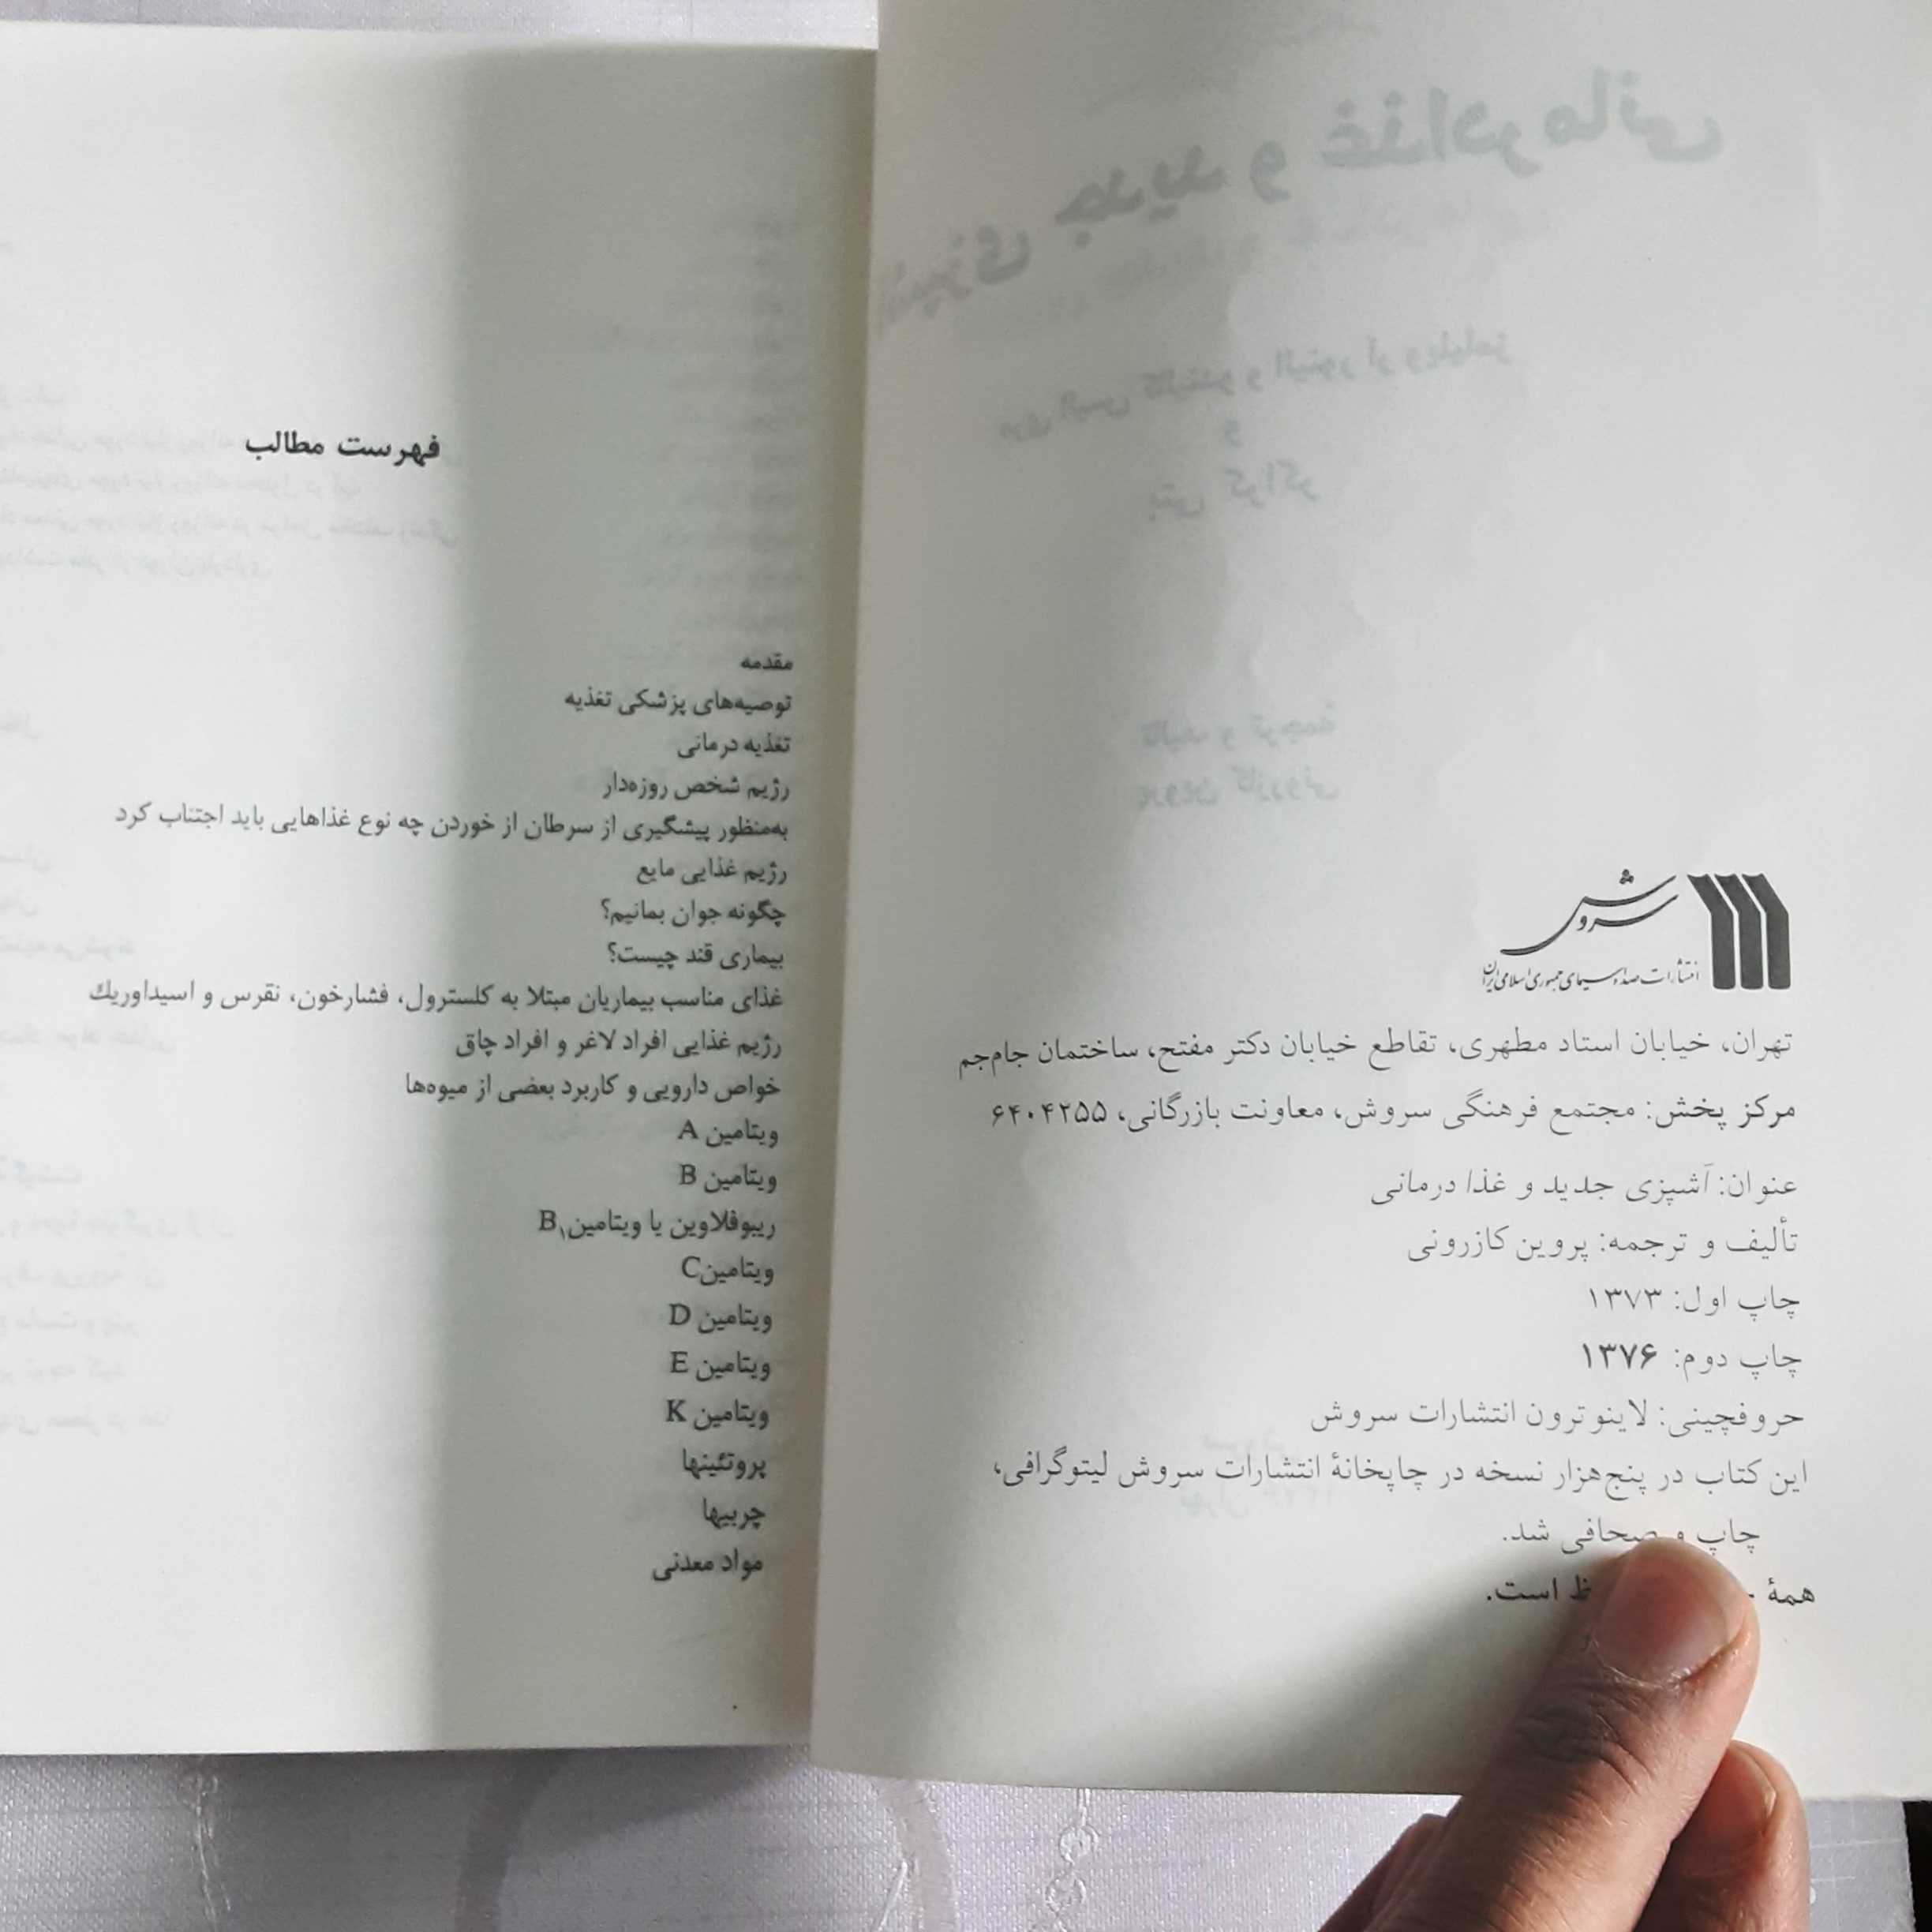 سروش
انتشارات صدا و سیمای جمهوری اسلامی ایران
تهران، خیابان استاد مطهری، تقاطع خیابان دکتر مفتح، ساختمان جام‌جم
مرکز پخش: مجتمع فرهنگی سروش، معاونت بازرگانی، ۶۴۰۴۲۵۵
عنوان: آشپزی جدید و غذا درمانی
تألیف و ترجمه: پروین کازرونی
چاپ اول: ۱۳۷۳
چاپ دوم: ۱۳۷۶
حروفچینی: لاینوترون انتشارات سروش
این کتاب در پنج‌هزار نسخه در چاپخانهٔ انتشارات سروش لیتوگرافی،
چاپ و صحافی شد.
همهٔ است.
فهرست مطالب
مقدمه
توصیه‌های پزشکی تغذیه
تغذیه درمانی
رژیم شخص روزه‌دار
به‌منظور پیشگیری از سرطان از خوردن چه نوع غذاهایی باید اجتناب کرد
رژیم غذایی مایع
چگونه جوان بمانیم؟
بیماری قند چیست؟
غذای مناسب بیماریان مبتلا به کلسترول، فشارخون، نقرس و اسیداوریك
رژیم غذایی افراد لاغر و افراد چاق
خواص دارویی و کاربرد بعضی از میوه‌ها
ویتامین A
ویتامین B
ریبوفلاوین یا ویتامین B۱
ویتامین C
ویتامین D
ویتامین E
ویتامین K
پروتئینها
چربیها
مواد معدنی